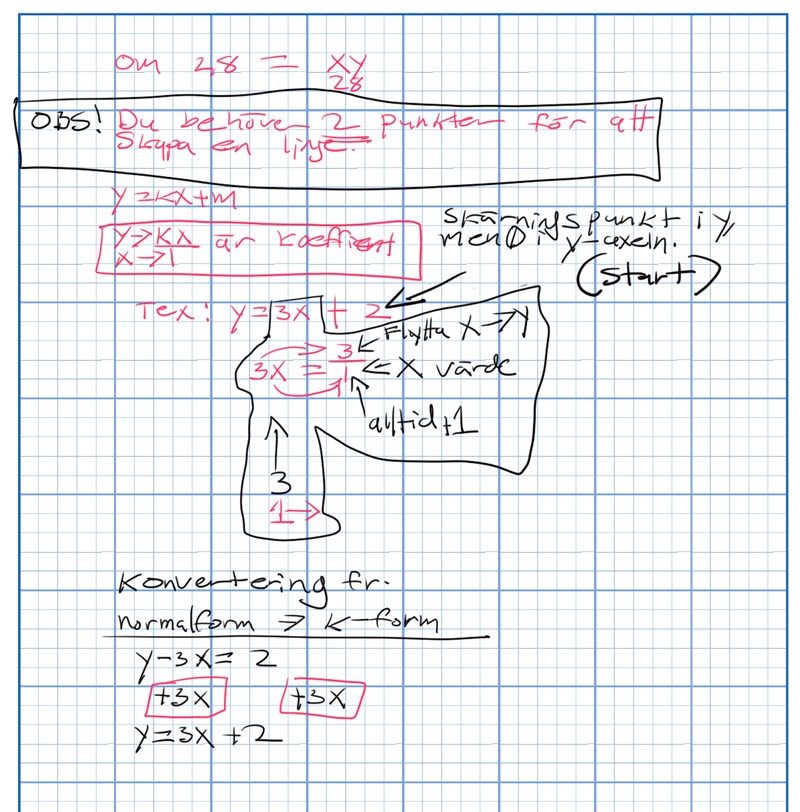 Om 2,8 = xy
28
OBS! Du behöver 2 punkter för att
skapa en linje.
y=kx+m
y→kx är koeffient
x→1
Skärningspunkt i y,
men 0 i y-axeln.
(start)
Tex: y=3x + 2
3x = 3/1
Flytta x→y
← x värde
alltid +1
3
1→
Konvertering fr.
normalform → k-form
y-3x= 2
+3x +3x
y=3x +2